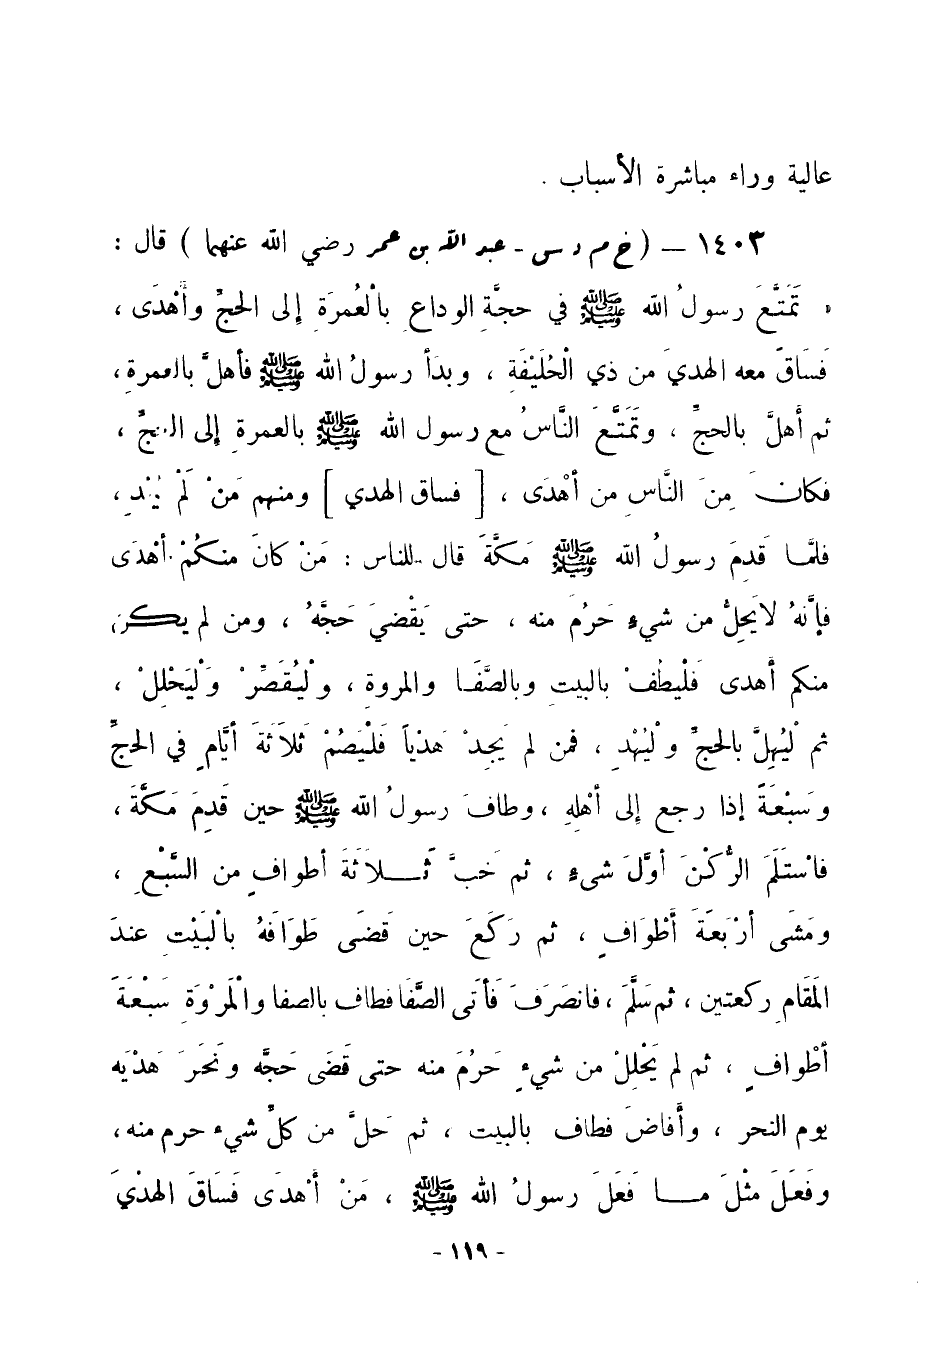 عالية وراء مباشرة الأسباب .
١٤٠٣ – ( خ م د س - عبد الله بن عمر رضي الله عنهما ) قال :
« تَمَتَّعَ رسولُ الله ﷺ في حجَّةِ الوداعِ بالْعُمرَةِ إلى الحجِّ وأَهْدَى ،
فَسَاقَ معه الهديَ من ذي الْحُلَيْفَةِ ، وبدَأَ رسولُ الله ﷺ فأَهلَّ بالعمرةِ ،
ثم أَهلَّ بالحجِّ ، وتَمَتَّعَ النَّاسُ مع رسول الله ﷺ بالعمرةِ إلى الحجِّ ،
فكانَ مِنَ النَّاسِ من أَهْدَى ، [ فساق الهدي ] ومنهم مَنْ لَمْ يُهْدِ ،
فلمَّا قَدِمَ رسولُ الله ﷺ مَكَّةَ قال للناس : مَنْ كانَ منكُمْ أَهْدَى
فإنَّهُ لا يَحِلُّ من شيءٍ حَرُمَ منه ، حتى يَقْضيَ حَجَّهُ ، ومن لم يكن
منكم أَهدى فَلْيطُفْ بالبيتِ وبالصَّفَا والمروةِ ، ولْيُقَصِّرْ ولْيَحْلِلْ ،
ثم لْيُهِلَّ بالحجِّ ولْيُهْدِ ، فمن لم يَجِدْ هَدْياً فَلْيَصُمْ ثَلاَثَةَ أَيَّامٍ في الحجِّ
وسَبْعَةً إذا رجع إلى أَهْلِهِ ، وطافَ رسولُ الله ﷺ حين قَدِمَ مَكَّةَ ،
فَاسْتَلَمَ الرُّكْنَ أوَّلَ شيءٍ ، ثم خَبَّ ثَلاَثَةَ أَطوافٍ من السَّبْعِ ،
ومَشَى أَرْبَعَةَ أَطْوَافٍ ، ثم ركَعَ حين قَضَى طَوَافَهُ بالْبَيْتِ عندَ
المَقَامِ ركعتين ، ثم سَلَّمَ ، فانصَرَفَ فَأَتى الصَّفَا فطاف بالصفا والْمَرْوَةِ سَبْعَةَ
أَطْوافٍ ، ثم لم يَحْلِلْ من شيءٍ حَرُمَ منه حتى قَضَى حَجَّه ونَحَرَ هَدْيَه
يوم النحر ، وأَفاضَ فطاف بالبيت ، ثم حَلَّ من كلِّ شيءٍ حرم منه ،
وفَعَلَ مثْلَ ما فَعَلَ رسولُ الله ﷺ ، مَنْ أَهْدَى فَسَاقَ الهدْيَ
- ١١٩ -